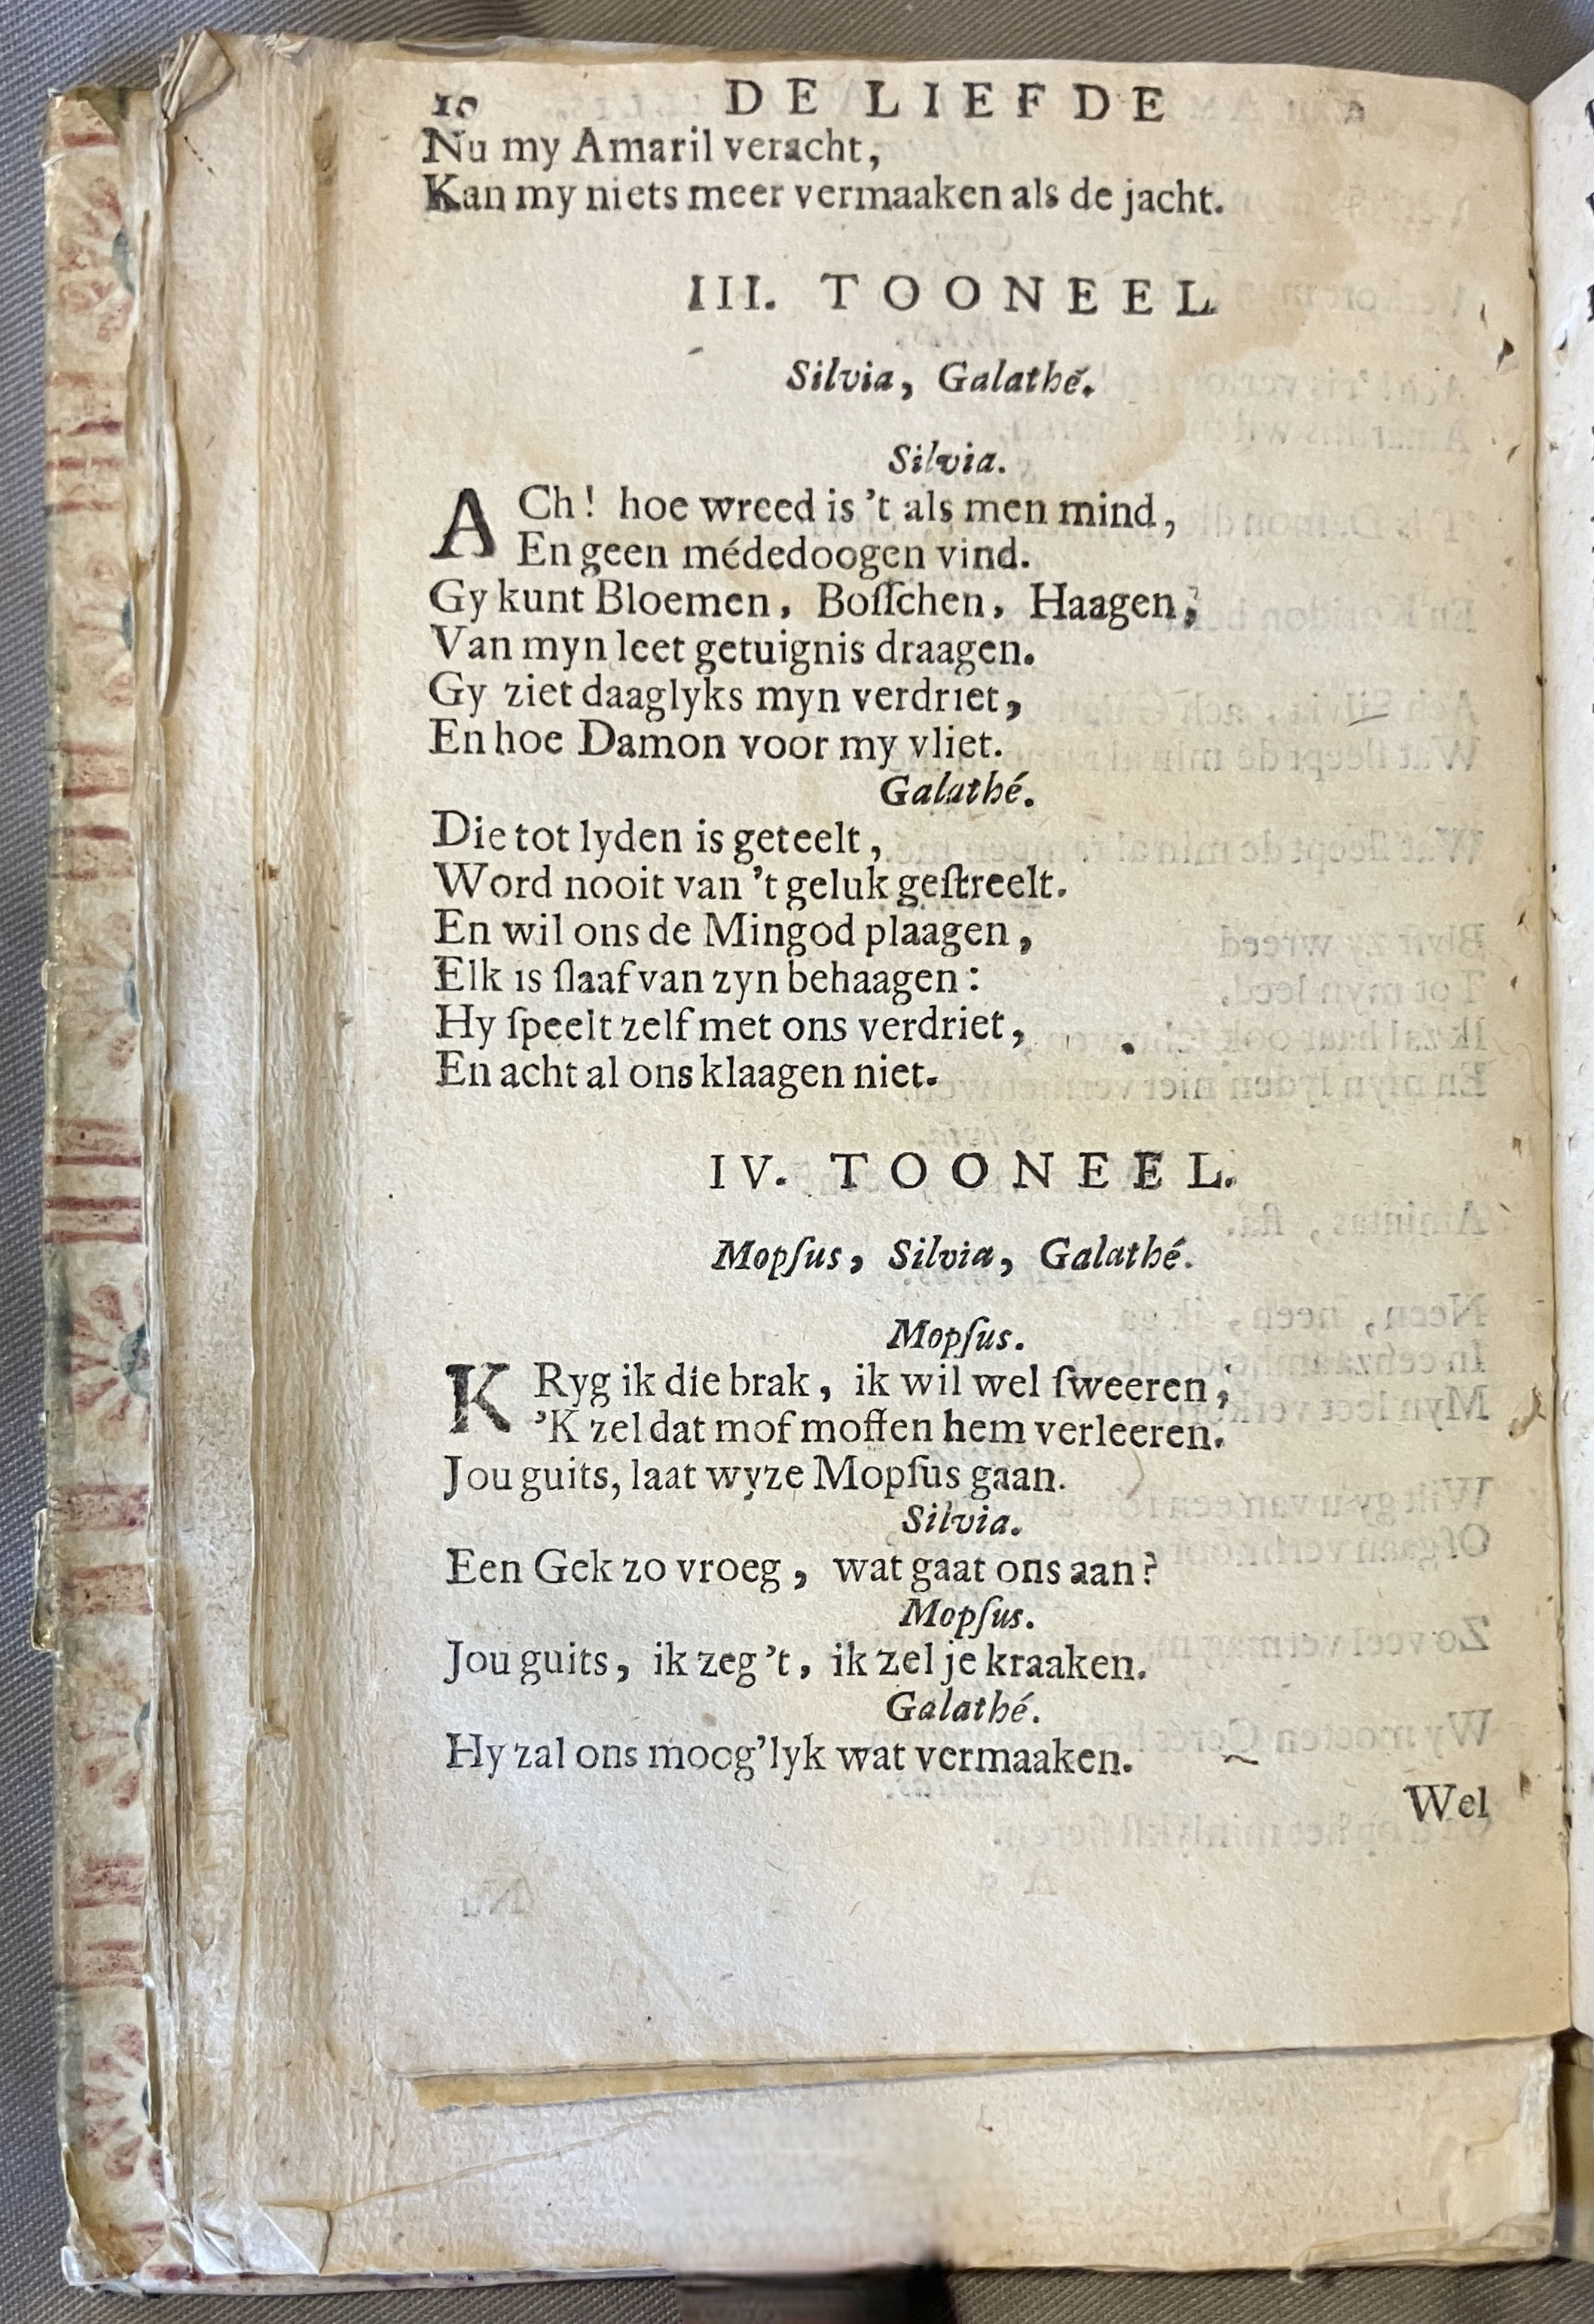 10 DE LIEFDE
Nu my Amaril veracht,
Kan my niets meer vermaaken als de jacht.
III. TOONEEL
Silvia, Galathé.
Silvia.
ACh! hoe wreed is 't als men mind,
En geen médedoogen vind.
Gy kunt Bloemen, Bosschen, Haagen,
Van myn leet getuignis draagen.
Gy ziet daaglyks myn verdriet,
En hoe Damon voor my vliet.
Galathé.
Die tot lyden is geteelt,
Word nooit van 't geluk geſtreelt.
En wil ons de Mingod plaagen,
Elk is ſlaaf van zyn behaagen:
Hy ſpeelt zelf met ons verdriet,
En acht al ons klaagen niet.
IV. TOONEEL.
Mopſus, Silvia, Galathé.
Mopſus.
KRyg ik die brak, ik wil wel ſweeren,
'K zel dat mof moffen hem verleeren.
Jou guits, laat wyze Mopſus gaan.
Silvia.
Een Gek zo vroeg, wat gaat ons aan?
Mopſus.
Jou guits, ik zeg 't, ik zel je kraaken.
Galathé.
Hy zal ons moog'lyk wat vermaaken.
Wel